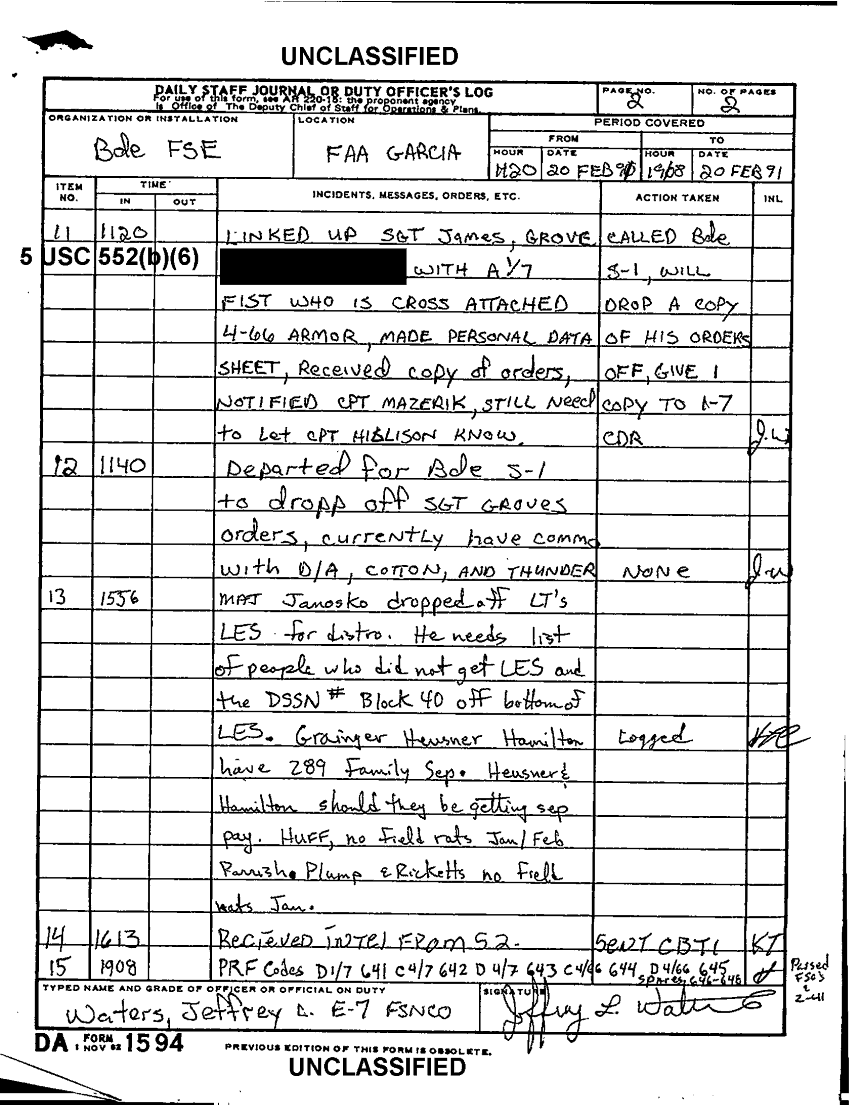 UNCLASSIFIED
DAILY STAFF JOURNAL OR DUTY OFFICER'S LOG
For use of this form, see AR 220-15; the proponent agency
is Office of The Deputy Chief of Staff for Operations & Plans.
PAGE NO.
2
NO. OF PAGES
2
ORGANIZATION OR INSTALLATION
Bde FSE
LOCATION
FAA GARCIA
PERIOD COVERED
FROM
TO
HOUR
1120
DATE
20 FEB 91
HOUR
1908
DATE
20 FEB 91
ITEM NO.
TIME
IN
OUT
INCIDENTS, MESSAGES, ORDERS, ETC.
ACTION TAKEN
INL
11 1120 LINKED UP SGT James, GROVE CALLED Bde
5 USC 552(b)(6) WITH A 1/7 S-1, WILL
FIST WHO IS CROSS ATTACHED DROP A COPY
4-66 ARMOR, MADE PERSONAL DATA OF HIS ORDERS
SHEET, Received copy of orders, OFF, GIVE 1
NOTIFIED CPT MAZERIK, STILL Need COPY TO 1-7
to Let CPT KNOW. CDR J.W
12 1140 Departed for Bde S-1
to dropp off SGT GROVES
orders, currently have commo
with D/A, COTTON, AND THUNDER NONE J.W
13 1556 MAJ Janosko dropped off LT's
LES for distro. He needs list
of people who did not get LES and
the DSSN # Block 40 off bottom of
LES. Grainger Heusner Hamilton Logged
have 289 Family Sep. Heusner &
Hamilton should they be getting sep
pay. HUFF, no field rats Jan/Feb
Parrish, Plump & Ricketts no field
rats Jan.
14 1613 Recieved INTEL FROM S2. SENT CBTI KT
15 1908 PRF Codes D1/7 641 C4/7 642 D 4/7 643 C4/66 644, D 4/66 645
spares, 646-648
Passed
FSO's
2-41
TYPED NAME AND GRADE OF OFFICER OR OFFICIAL ON DUTY
Waters, Jeffrey L. E-7 FSNCO
SIGNATURE
Jeffrey L. Waters
DA FORM 1594
1 NOV 62
PREVIOUS EDITION OF THIS FORM IS OBSOLETE.
UNCLASSIFIED